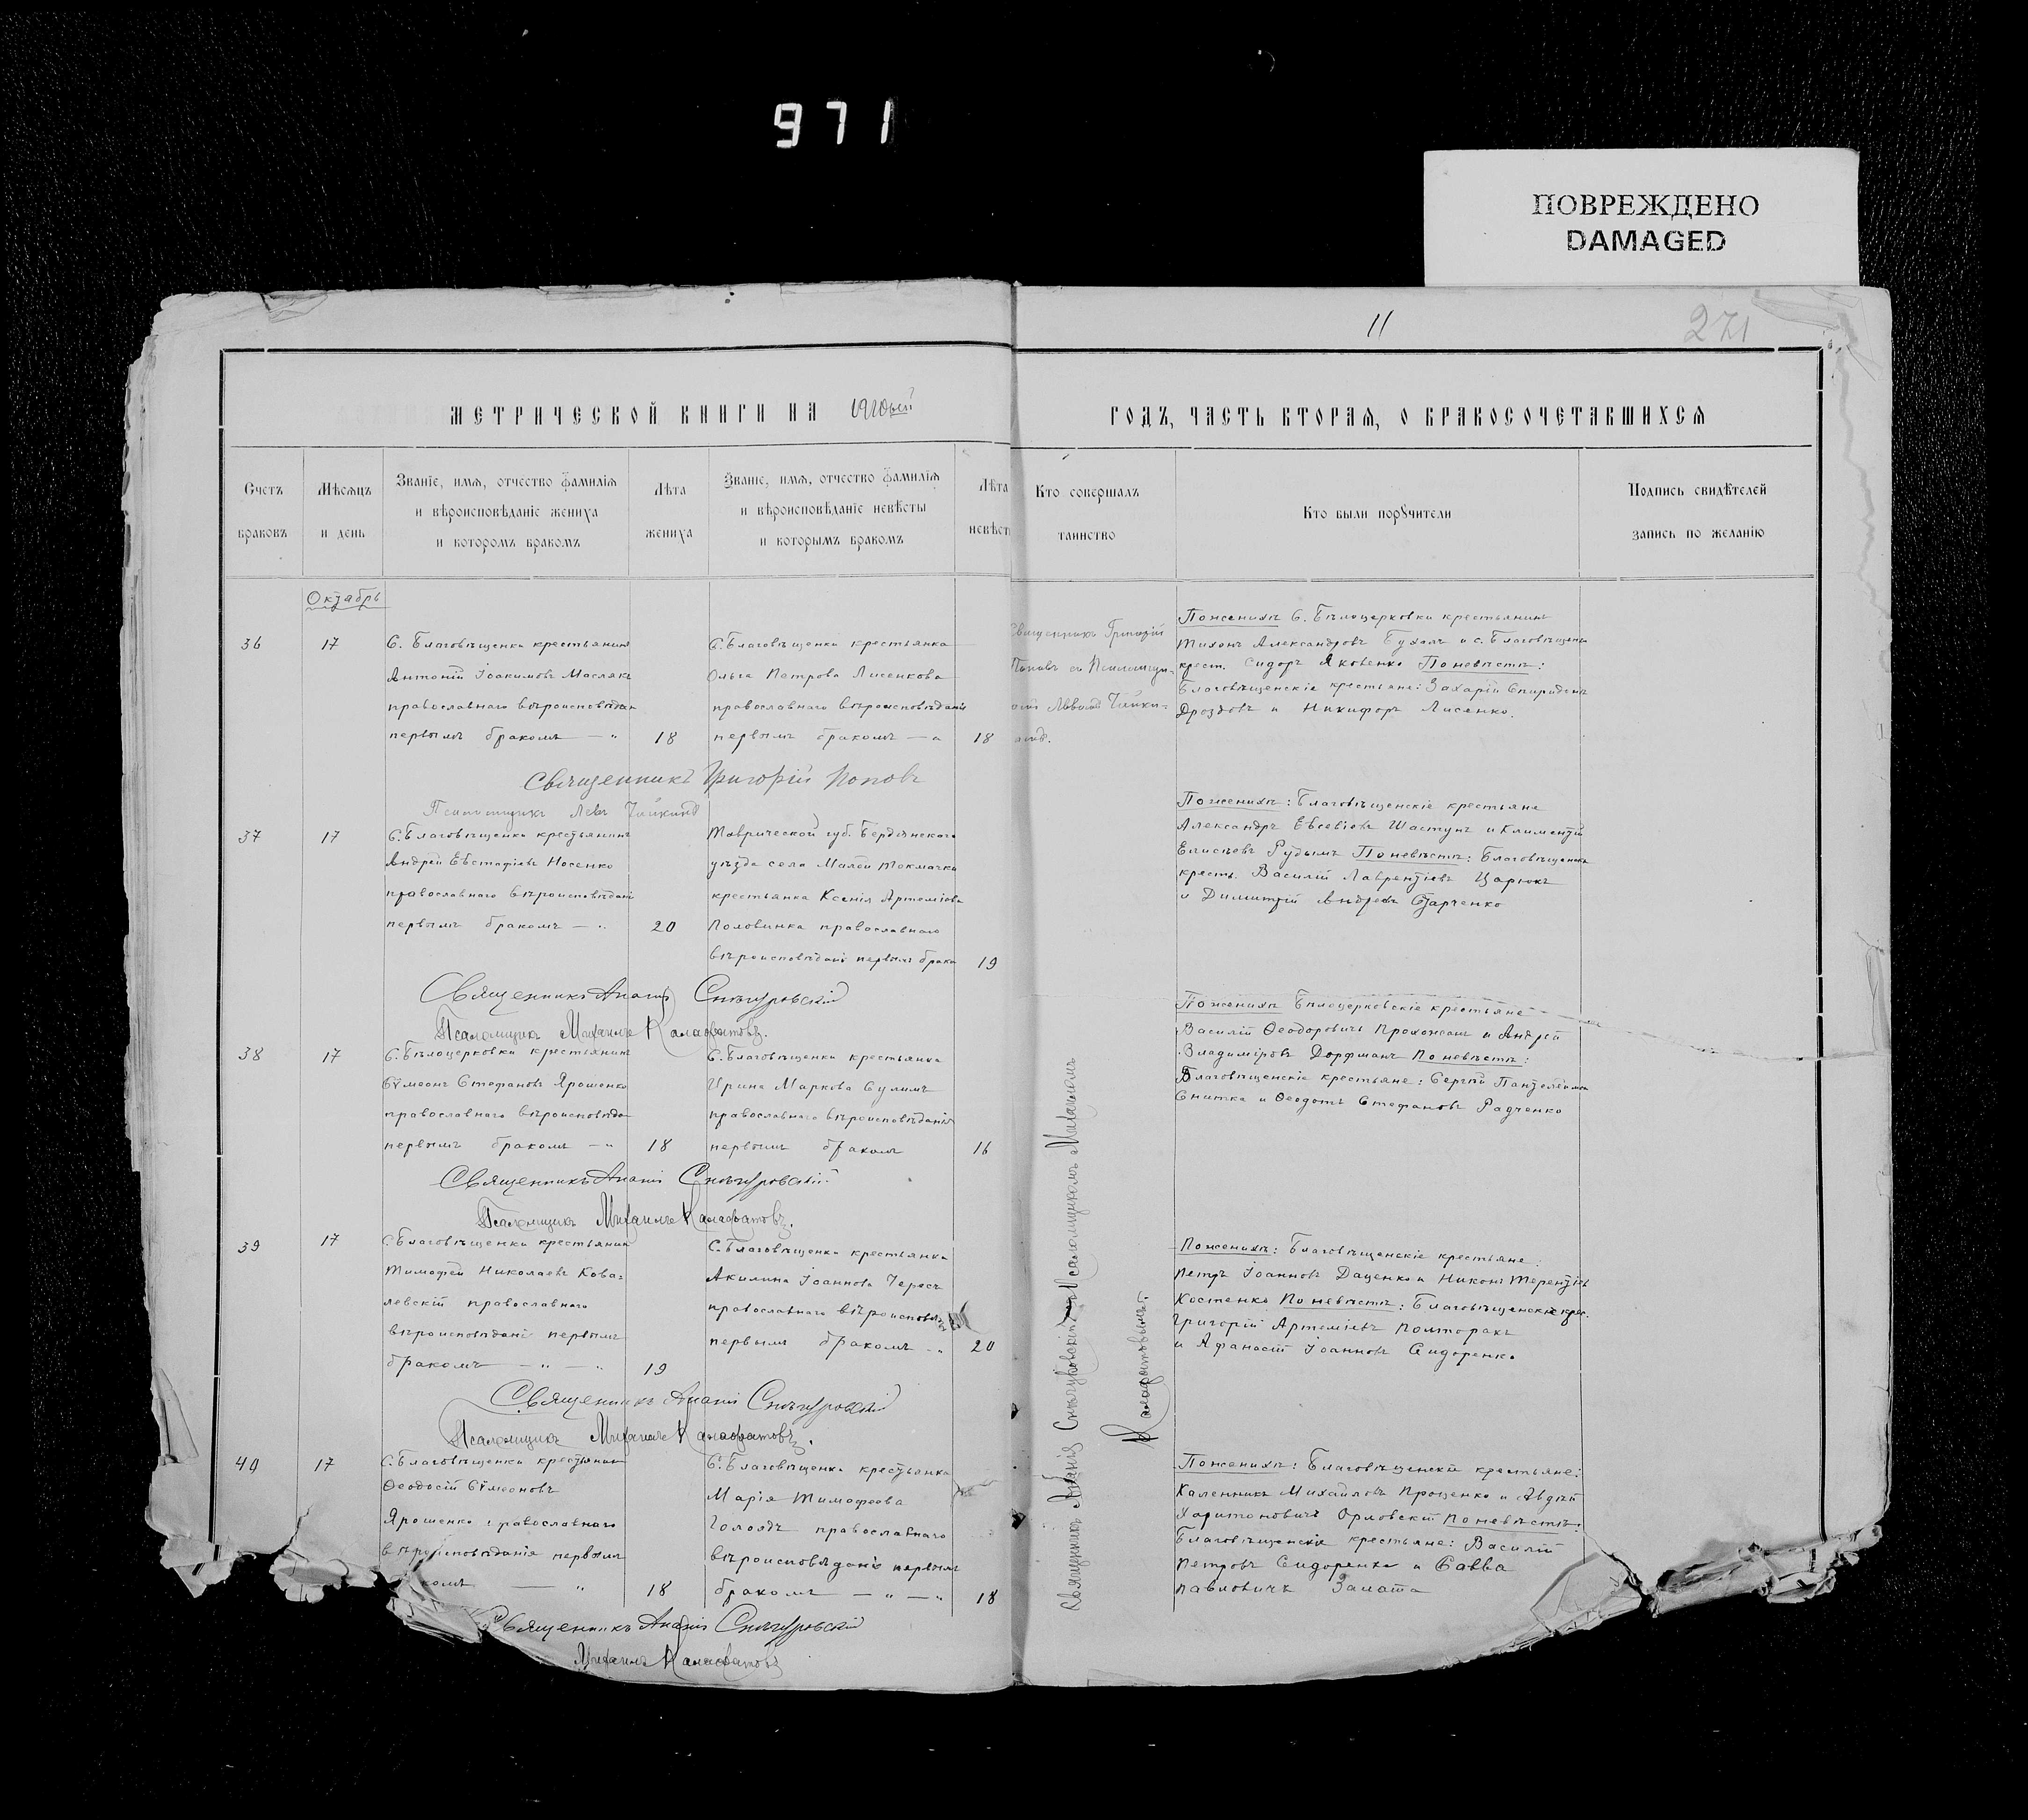 971
ПОВРЕЖДЕНО
DAMAGED
11
271
МЕТРИЧЕСКОЙ КНИГИ НА 1910ый
ГОДЪ, ЧАСТЬ ВТОРАЯ, О БРАКОСОЧЕТАВШИХСЯ
Счетъ
браковъ
Мѣсяцъ
и день
Званіе, имя, отчество фамилія
и вѣроисповѣданіе жениха
и которомъ бракомъ
Лѣта
жениха
Званіе, имя, отчество фамилія
и вѣроисповѣданіе невѣсты
и которымъ бракомъ
Лѣта
невѣст
Кто совершалъ
таинство
Кто были порꙋчители
Подпись свидѣтелей
запись по желанію
Октябрь
36
17
С. Благовѣщенки крестьянинъ
Антоній Іоакимовъ Маслякъ
православнаго вѣроисповѣдан
первымъ бракомъ — "
18
С. Благовѣщенки крестьянка
Ольга Петрова Лисенкова
православнаго вѣроисповѣданія
первымъ бракомъ —
18
Священникъ Григорій
Поповъ съ Псаломщи-
Поженихъ С. Бѣлоцерковки крестьянинъ
Тихонъ Александровъ и с. Благовѣщенки
крест. Сидоръ Яковенко Поневѣстѣ:
Благовѣщенскіе крестьяне: Захарій Спиридон
Дроздовъ и Никифоръ Лисенко.
Священникъ Григорій Поповъ
Псаломщикъ Левъ
37
17
С. Благовѣщенки крестьянинъ
Андрей Евстафіевъ Носенко
православнаго вѣроисповѣдані
первымъ бракомъ — "
20
Таврической губ. Бердянскаго
уѣзда села Малой Токмачки
крестьянка Ксенія Артеміова
Половинка православнаго
вѣроисповѣдані первымъ брака
19
Поженихѣ: Благовѣщенскіе крестьяне
Александръ Евсевіевъ Шастунъ и Климентій
Елисѣевъ Рудымъ Поневѣстѣ: Благовѣщенск
крестъ. Василій Лаврентіевъ Царюкъ
и Димитрій Андреевъ Старченко
Священникъ Ананій Снѣгуровскій
Псаломщикъ Михаилъ Калафатовъ.
38
17
С. Бѣлоцерковки крестьянинъ
Сѵмеонъ Стефановъ Ярошенко
православнаго вѣроисповѣда
первымъ бракомъ — "
18
С. Благовѣщенки крестьянка
Ирина Маркова Сулимъ
православнаго вѣроисповѣданія
первымъ бракомъ
16
Поженихѣ Бѣлоцерковскіе крестьяне
Василій Ѳеодоровичъ Прохожанъ и Андрей
Владиміровъ Дорфманъ Поневѣстѣ:
Благовѣщенскіе крестьяне: Сергій Пантелеимон
Снитка и Ѳеодотъ Стефановъ Радченко
Священникъ Ананій Снѣгуровскій
Псаломщикъ Михаилъ Калафатовъ.
39
17
С. Благовѣщенки крестьянин
Тимофей Николаевъ Кова=
левскій православнаго
вѣроисповѣдані первымъ
бракомъ — " — "
19
С. Благовѣщенки крестьянка
Акилина Іоаннова Чересъ
православнаго вѣроисповѣд
первымъ бракомъ — "
20
Поженихѣ: Благовѣщенскіе крестьяне:
Петръ Іоанновъ Даценко и Никонъ Терентіев
Костенко Поневѣстѣ: Благовѣщенскіе крес.
Григорій Артеміевъ Полторакъ
и Афанасій Іоанновъ Сидоренко
Священникъ Ананій Снѣгуровскій
Псаломщикъ Михаилъ Калафатовъ.
40
17
С. Благовѣщенки крестьянин
Ѳеодосій Сѵмеоновъ
Ярошенко православнаго
вѣроисповѣданія первымъ
комъ — "
18
С. Благовѣщенки крестьянка
Марія Тимофеева
Голоядъ православнаго
вѣроисповѣданіе первымъ
бракомъ — " — "
18
Поженихѣ: Благовѣщенскіе крестьяне:
Каленникъ Михайловъ Проценко и Авдій
Харитоновичъ Орловскій Поневѣстѣ:
Благовѣщенскіе крестьяне: Василій
Петровъ Сидоренко и Савва
Павловичъ Залата
Священникъ Ананій Снѣгуровскій
Михаилъ Калафатовъ
Священникъ Ананій Снѣгуровскій съ Псаломщикомъ Михаиломъ
Калафатовымъ.